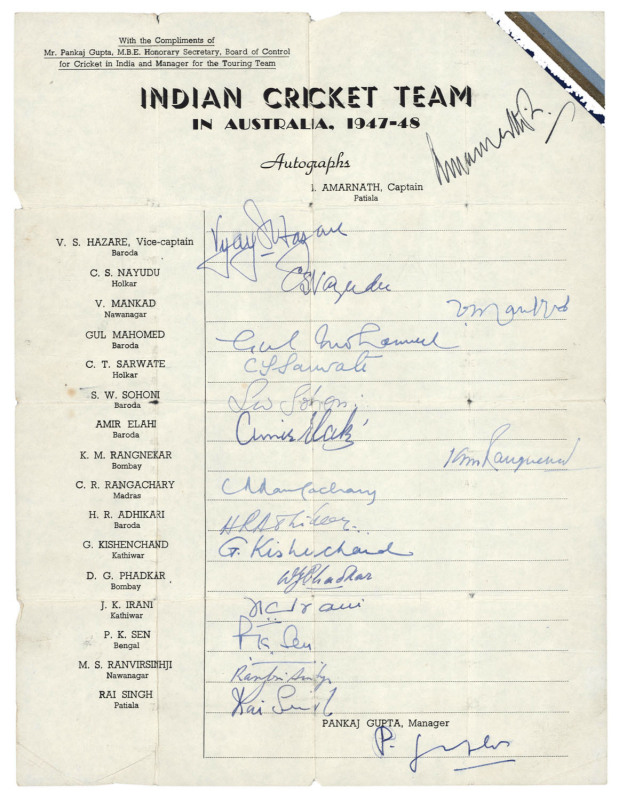 With the Compliments of
Mr. Pankaj Gupta, M.B.E. Honorary Secretary, Board of Control
for Cricket in India and Manager for the Touring Team
INDIAN CRICKET TEAM
IN AUSTRALIA, 1947-48
Autographs
L. AMARNATH, Captain
Patiala
V. S. HAZARE, Vice-captain
Baroda
Vijay S Hazare
C. S. NAYUDU
Holkar
CS Nayudu
V. MANKAD
Nawanagar
V. Mankad
GUL MAHOMED
Baroda
Gul Mohamed
C. T. SARWATE
Holkar
C T Sarwate
S. W. SOHONI
Baroda
SW Sohoni
AMIR ELAHI
Baroda
Amir Elahi
K. M. RANGNEKAR
Bombay
KM Rangnekar
C. R. RANGACHARY
Madras
CR Rangachary
H. R. ADHIKARI
Baroda
HR Adhikari
G. KISHENCHAND
Kathiwar
G. Kishenchand
D. G. PHADKAR
Bombay
DG Phadkar
J. K. IRANI
Kathiwar
JK Irani
P. K. SEN
Bengal
P.K. Sen
M. S. RANVIRSINHJI
Nawanagar
RAI SINGH
Patiala
Rai Singh
PANKAJ GUPTA, Manager
P. Gupta